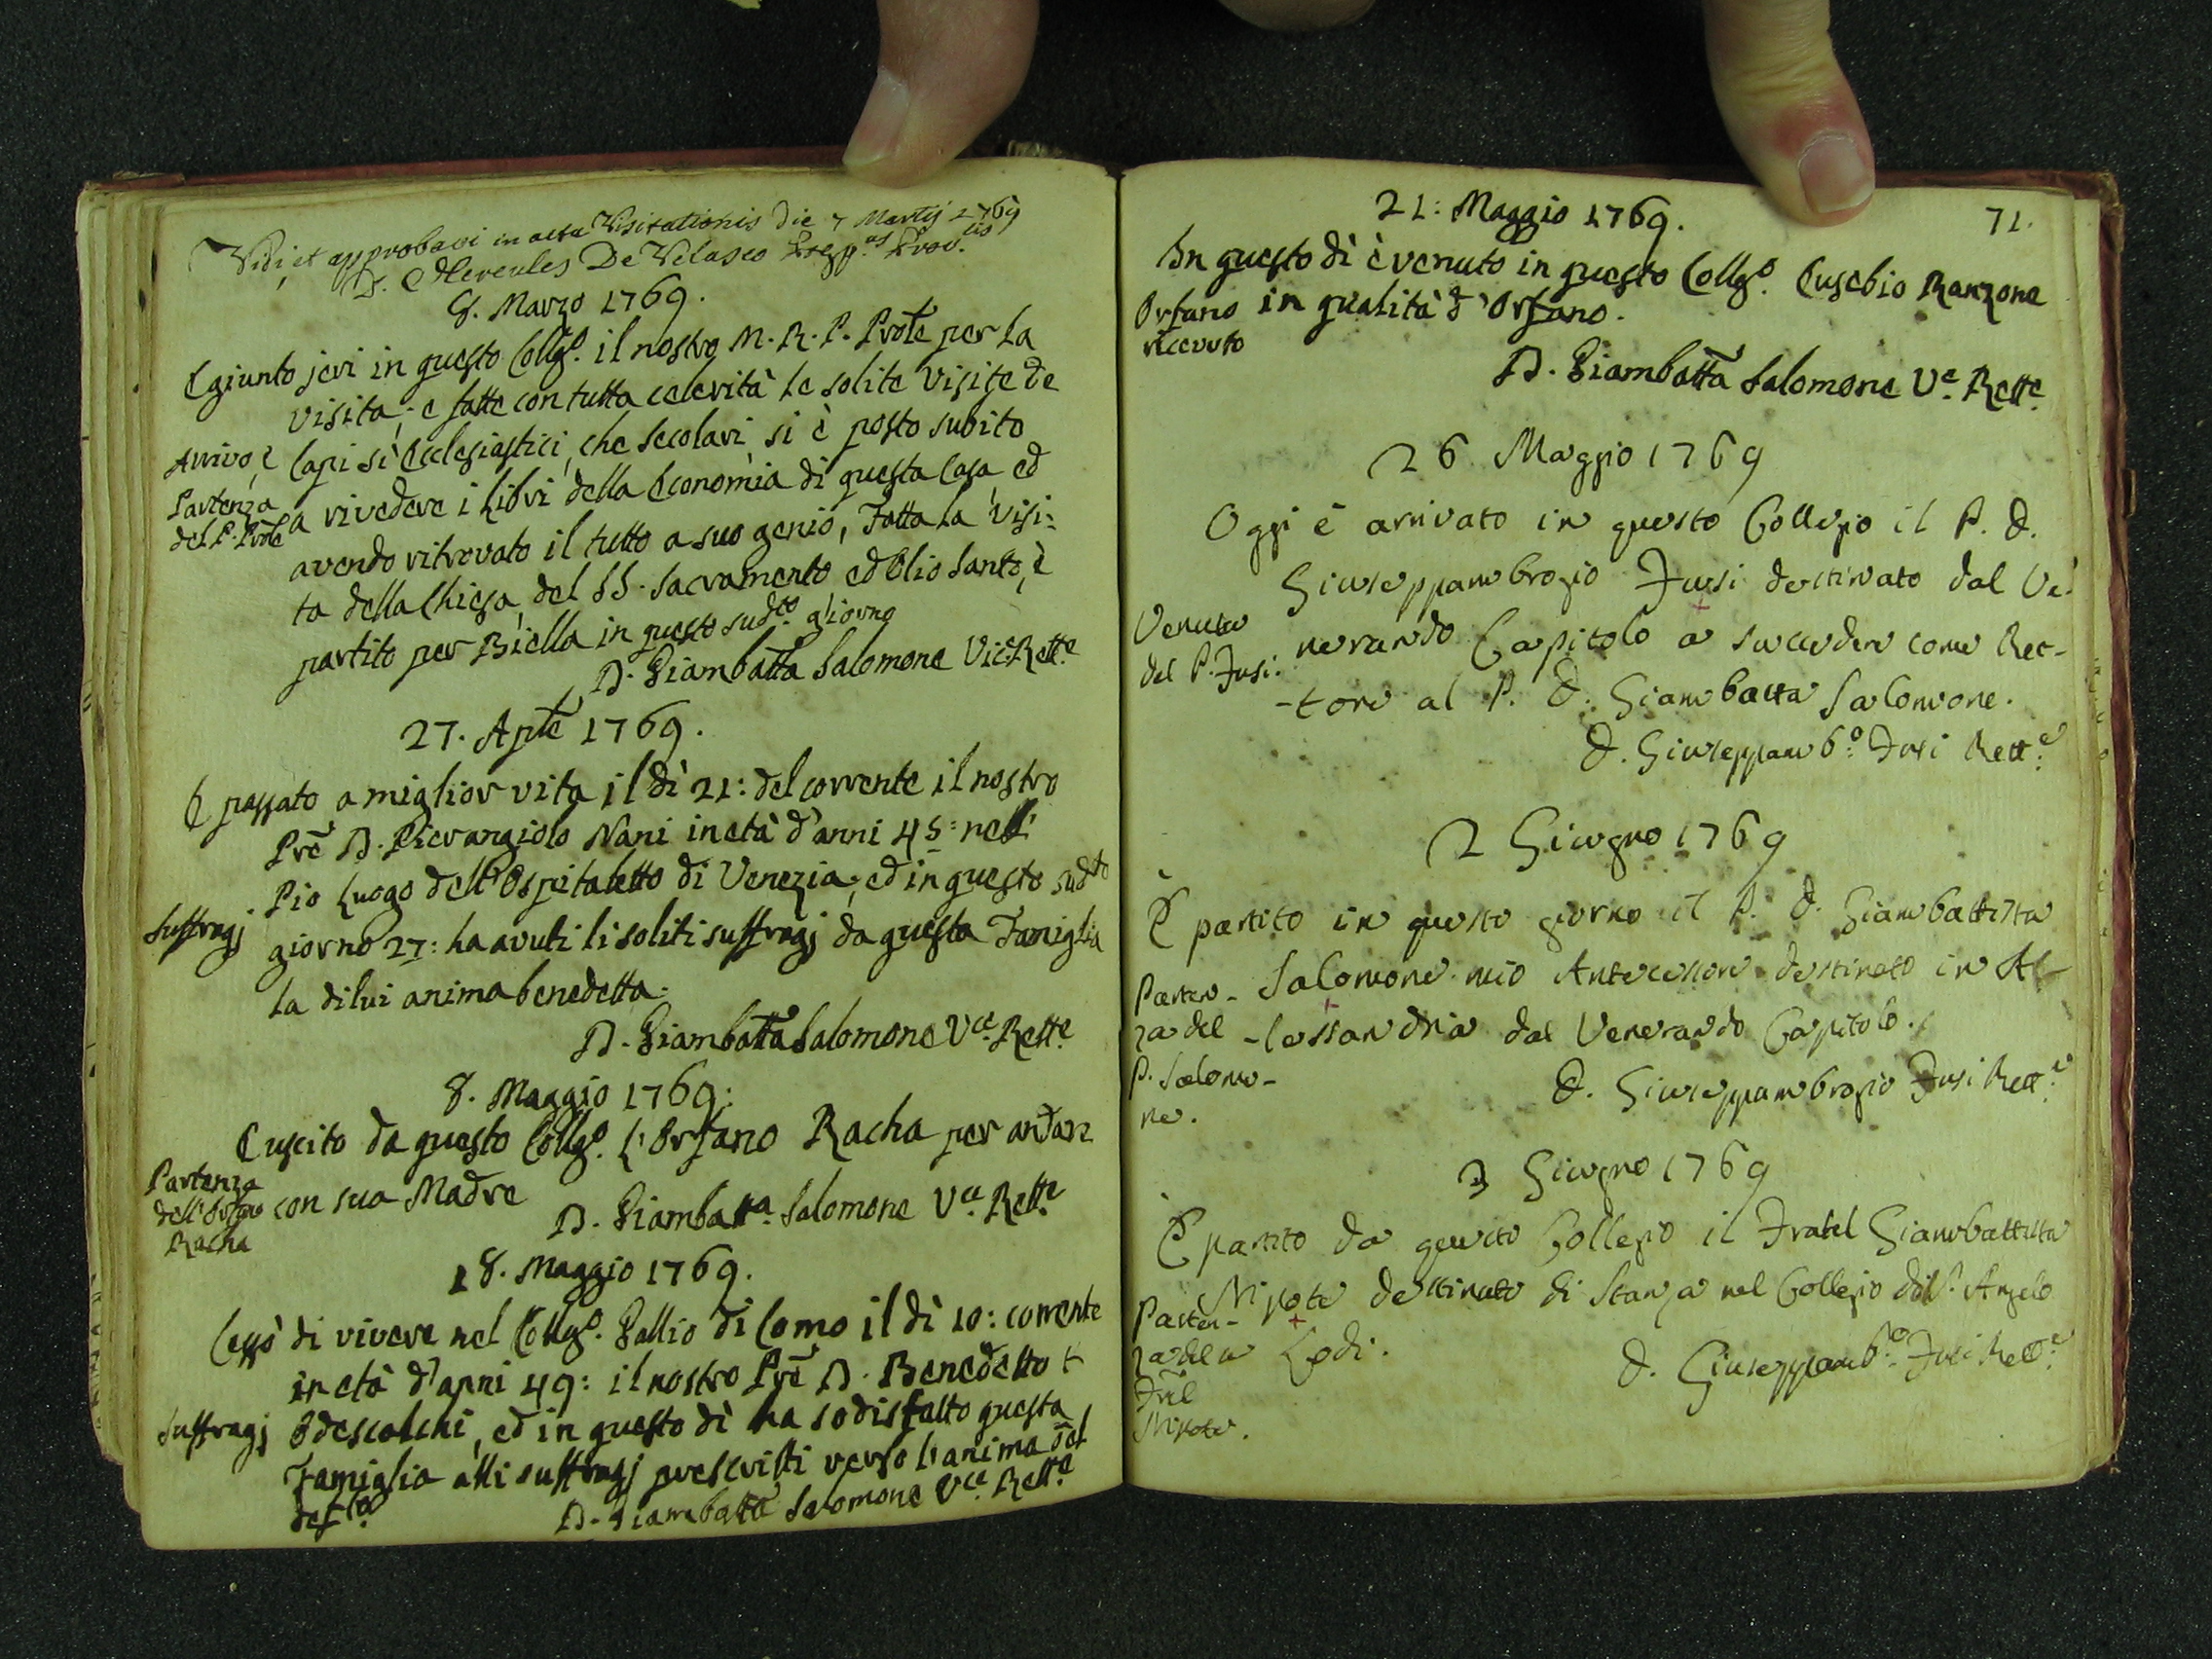 Vidi, et approbavi in acta Visitationis die 7 Martij 1769
D. Hercules De Velasco Prov.lis
8. Marzo 1769.
È giunto jeri in questo Collg.o il nostro M. R. P. Prote per la
visita; e fatte con tutta celerità le solite visite de
Arrivo, e
Partenza
del P. Prole
Capi sì Ecclesiastici, che secolari si è posto subito
a rivedere i Libri della Economia di questa Casa, ed
avendo ritrovato il tutto a suo genio, Fatta la visi:
ta della Chiesa, del SS. Sacramento ed Olio Santo, è
partito per Biella in questo sud.to giorno
D. Giambatta Salomone Vic: Rett.e
27. Aple 1769.
È passato a miglior vita il dì 21: del corrente il nostro
Prè D. Pierangiolo Nani in età d'anni 45: nell'
Pio Luogo dell'Ospitaletto di Venezia; ed in questo sudto
Suffragj
giorno 27: ha avuti li soliti suffragj da questa Famiglia
la di lui anima benedetta.
D. Giambatta Salomone Vce. Rett.e
8. Maggio 1769:
È uscito da questo Collg.o l'Orfano Racha per andar
Partenza
dell'Orfano
Racha
con sua Madre
D. Giambatt.a Salomone Vce. Rett.e
18. Maggio 1769.
Cessò di vivere nel Collg.o Gallio di Como il dì 10: corrente
in età d'anni 49: il nostro Prè D. Benedetto
Suffragj
Odescalchi, ed in questo dì ha sodisfatto questa
Famiglia alli suffragj prescritti verso l'anima del
def.to
D. Giambatta Salomone Vce. Rett.e
71.
21: Maggio 1769.
In questo dì è venuto in questo Collg.o Eusebio Ranzone
Orfano
ricevuto
in qualità d'Orfano.
D. Giambatta Salomone V.e Rett.e
26 Maggio 1769
Oggi è arrivato in questo Collegio il P. D.
Giuseppambrogio Fusi destinato dal Ve-
Venuta
del P. Fusi.
nerando Capitolo a succedere come Ret-
-tore al P. D. Giambatta Salomone.
D. Giuseppamb.o Fusi Rett.e
2 Giugno 1769
È partito in questo giorno il P. D. Giambattista
Parten-
za del
P. Salomo-
ne.
Salomone mio Antecessore destinato in Al-
-lessandria dal Venerando Capitolo.
D. Giuseppambrogio Fusi Rett.e
3 Giugno 1769
È partito da questo Collegio il Fratel Giambattista
Parten-
za del
Frèl
Nipote.
Nipote destinato di Stanza nel Collegio di S. Angelo
Lodi.
D. Giuseppamb.o Fusi Rett.e